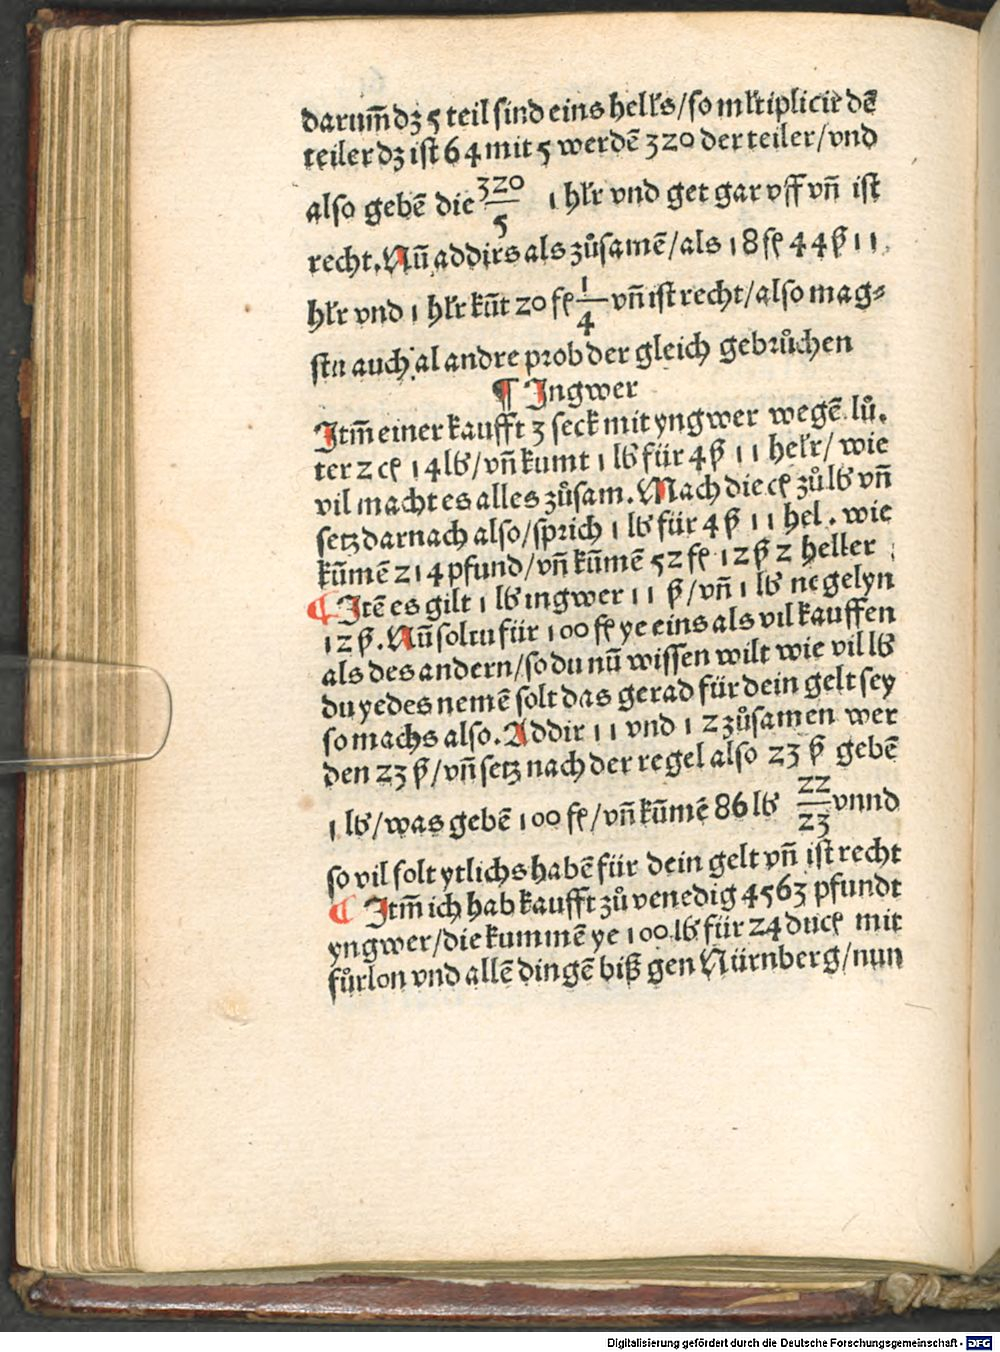 darum̄ dz 5 teil sind eins hell's/so ml'tiplicir dē
teiler dz ist 64 mit 5 werdē 320 der teiler/vnd
also gebē die 320/5 1 hl'r vnd get gar vff vn̄ ist
recht. Nū addirs als zůsamē/als 18 fl 44 ß 11
hl'r vnd 1 hl'r kūt 20 fl 1/4 vn̄ ist recht/also mag⸗
stu auch al andre prob der gleich gebrůchen
¶ Ingwer
Itm̄ einer kaufft 3 seck mit yngwer wegē lů.
ter 2 cꝭ 14 lb/vn̄ kumt 1 lb für 4 ß 11 hel'r/ wie
vil macht es alles zůsam. Mach die cꝭ zů lb vn̄
setz darnach also/sprich 1 lb für 4 ß 11 hel. wie
kūmē 214 pfund/vn̄ kūmē 52 fl 12 ß 2 heller
¶ Itē es gilt 1 lb ingwer 11 ß/vn̄ 1 lb negelyn
12 ß. Nū soltu für 100 fl ye eins als vil kauffen
als des andern/so du nū wissen wilt wie vil lb
du yedes nemē solt das gerad für dein gelt sey
so machs also. Addir 11 vnd 12 zůsamen wer
den 23 ß/vn̄ setz nach der regel also 23 ß gebē
1 lb/was gebē 100 fl/vn̄ kūmē 86 lb 22/23 vnnd
so vil solt ytlichs habē für dein gelt vn̄ ist recht
¶ Itm̄ ich hab kaufft zů venedig 4563 pfundt
yngwer/die kummē ye 100 lb für 24 ducꝭ mit
fůrlon vnd allē dingē biß gen Nürnberg/nun
Digitalisierung gefördert durch die Deutsche Forschungsgemeinschaft - DFG